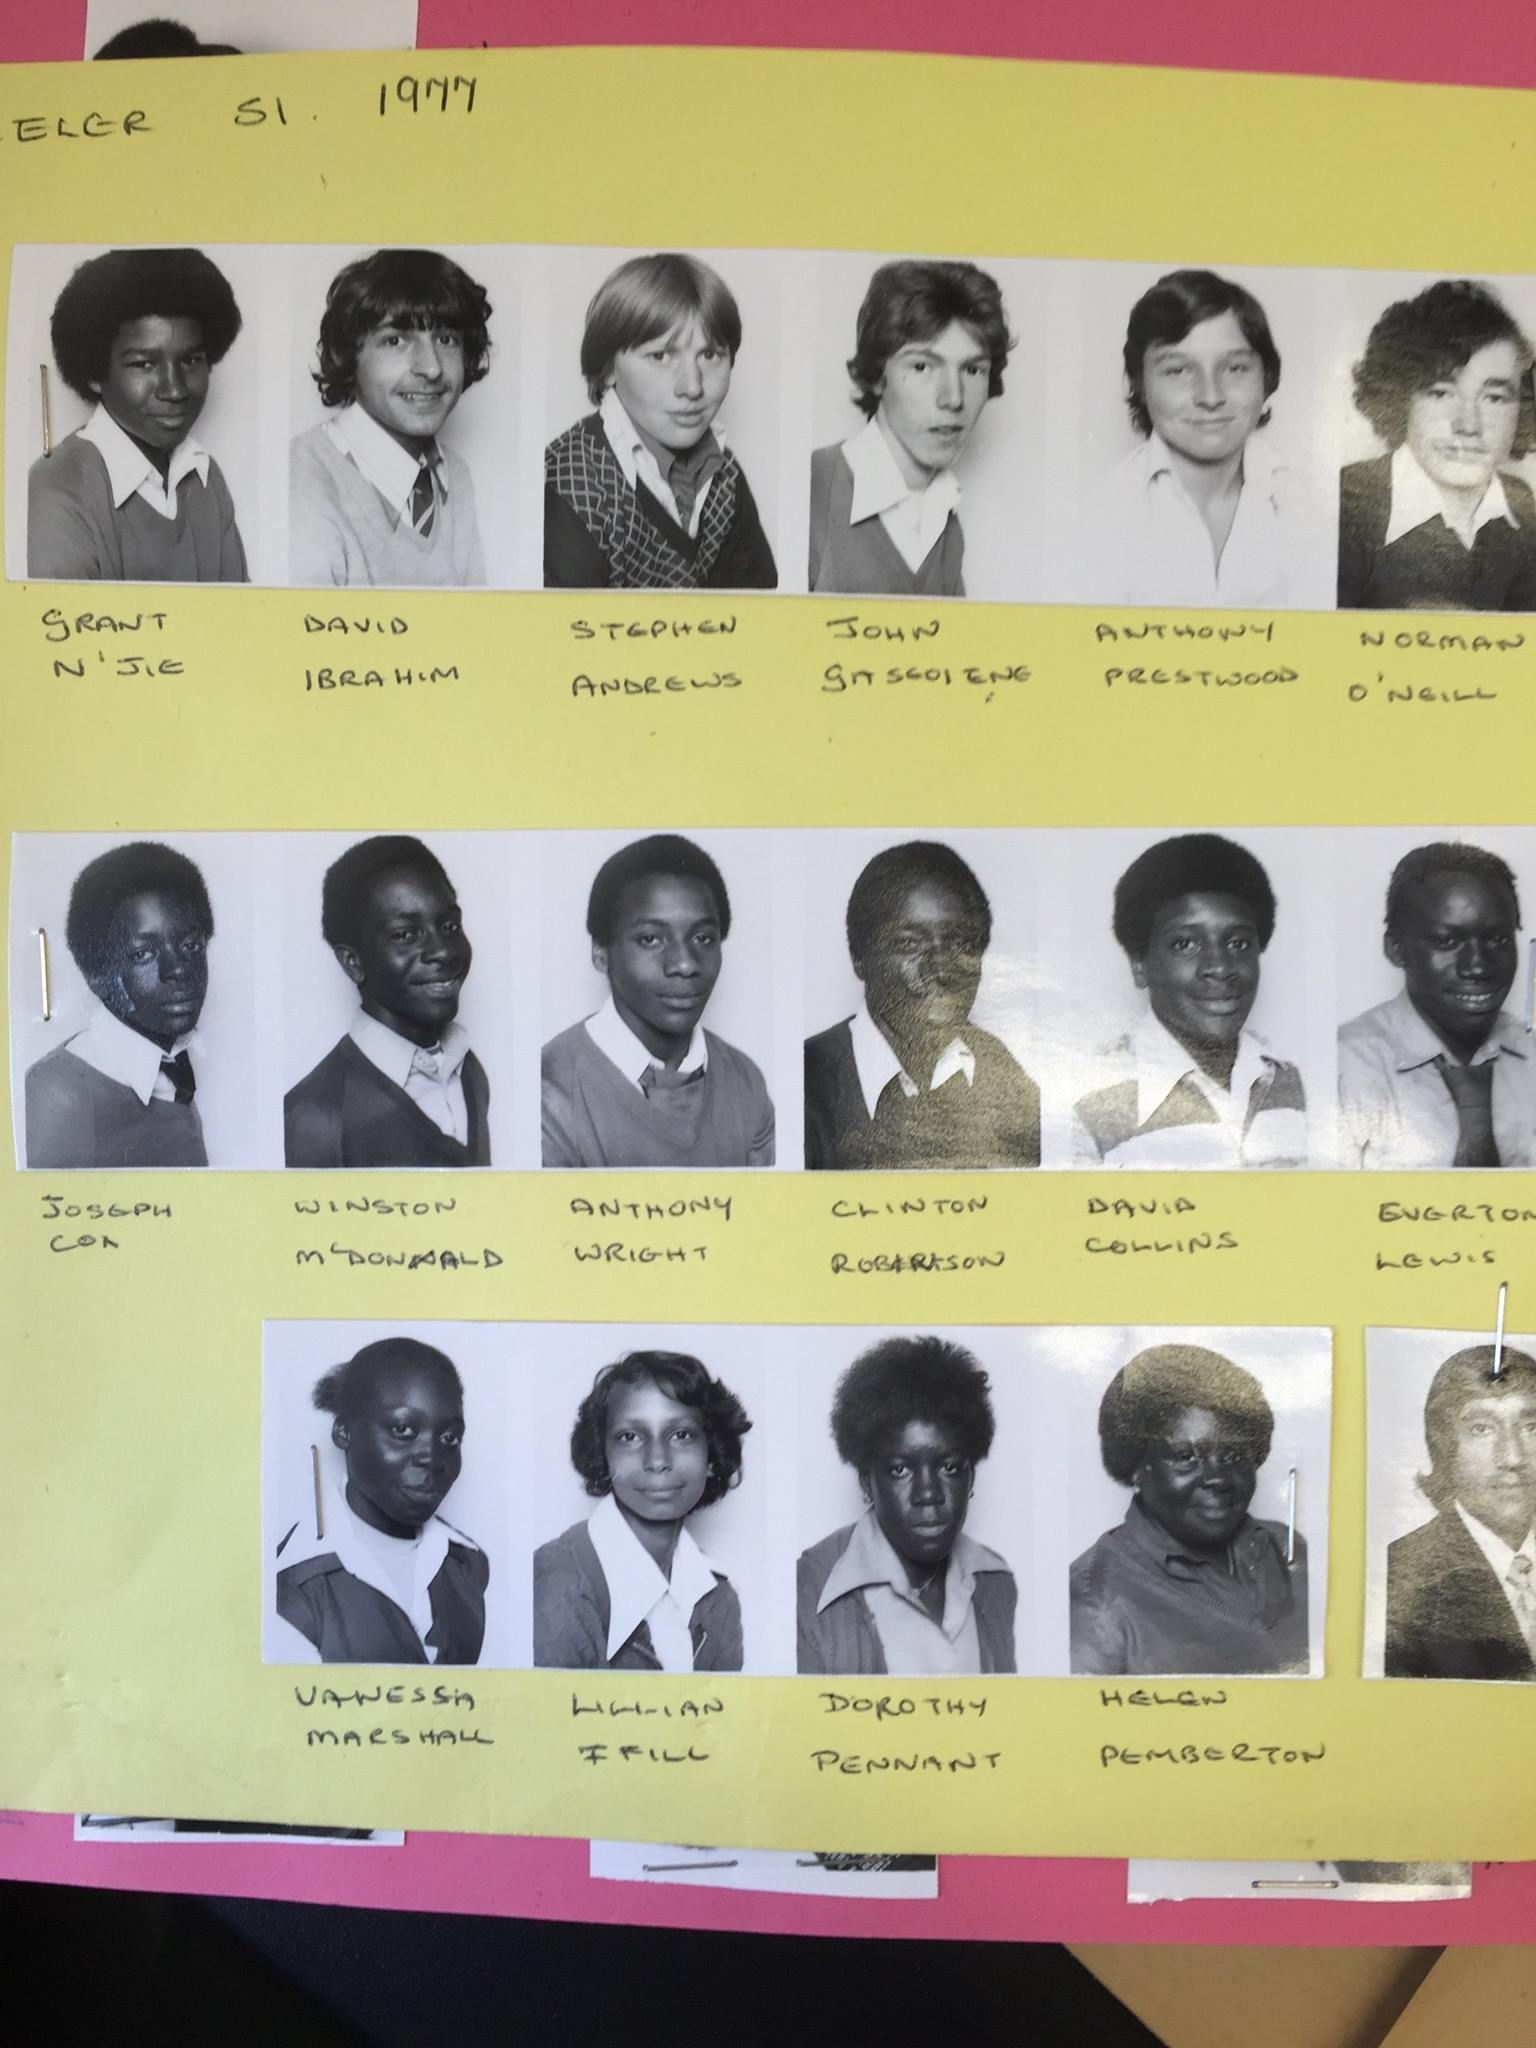 EELER S1. 1977
GRANT DAVID STEPHEN JOHN ANTHONY NORMAN
N'JIE IBRAHIM ANDREWS GASCOIENE PRESTWOOD O'NEILL
JOSEPH WINSTON ANTHONY CLINTON DAVID EVERTON
COX McDONALD WRIGHT ROBERTSON COLLINS LEWIS
VANESSA LILLIAN DOROTHY HELEN
MARSHALL IFILL PENNANT PEMBERTON